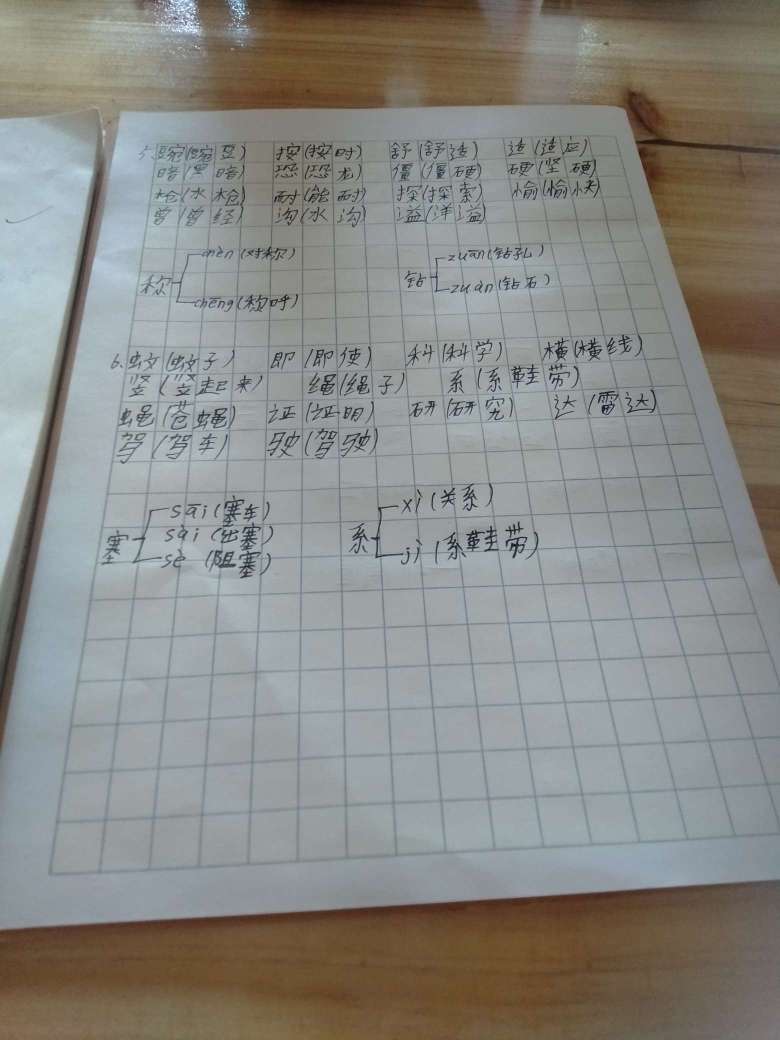 5.豌(豌豆) 按(按时) 舒(舒适) 适(适应)
暗(黑暗) 恐(恐龙) 僵(僵硬) 硬(坚硬)
枪(水枪) 耐(能耐) 探(探索) 愉(愉快)
曾(曾经) 沟(水沟) 溢(洋溢)
称 chèn(对称) chēng(称呼)
钻 zuān(钻孔) zuàn(钻石)
6.蚊(蚊子) 即(即使) 科(科学) 横(横线)
竖(竖起来) 绳(绳子) 系(系鞋带)
蝇(苍蝇) 证(证明) 研(研究) 达(雷达)
驾(驾车) 驶(驾驶)
塞 sāi(塞车) sài(出塞) sè(阻塞)
系 xì(关系) jì(系鞋带)